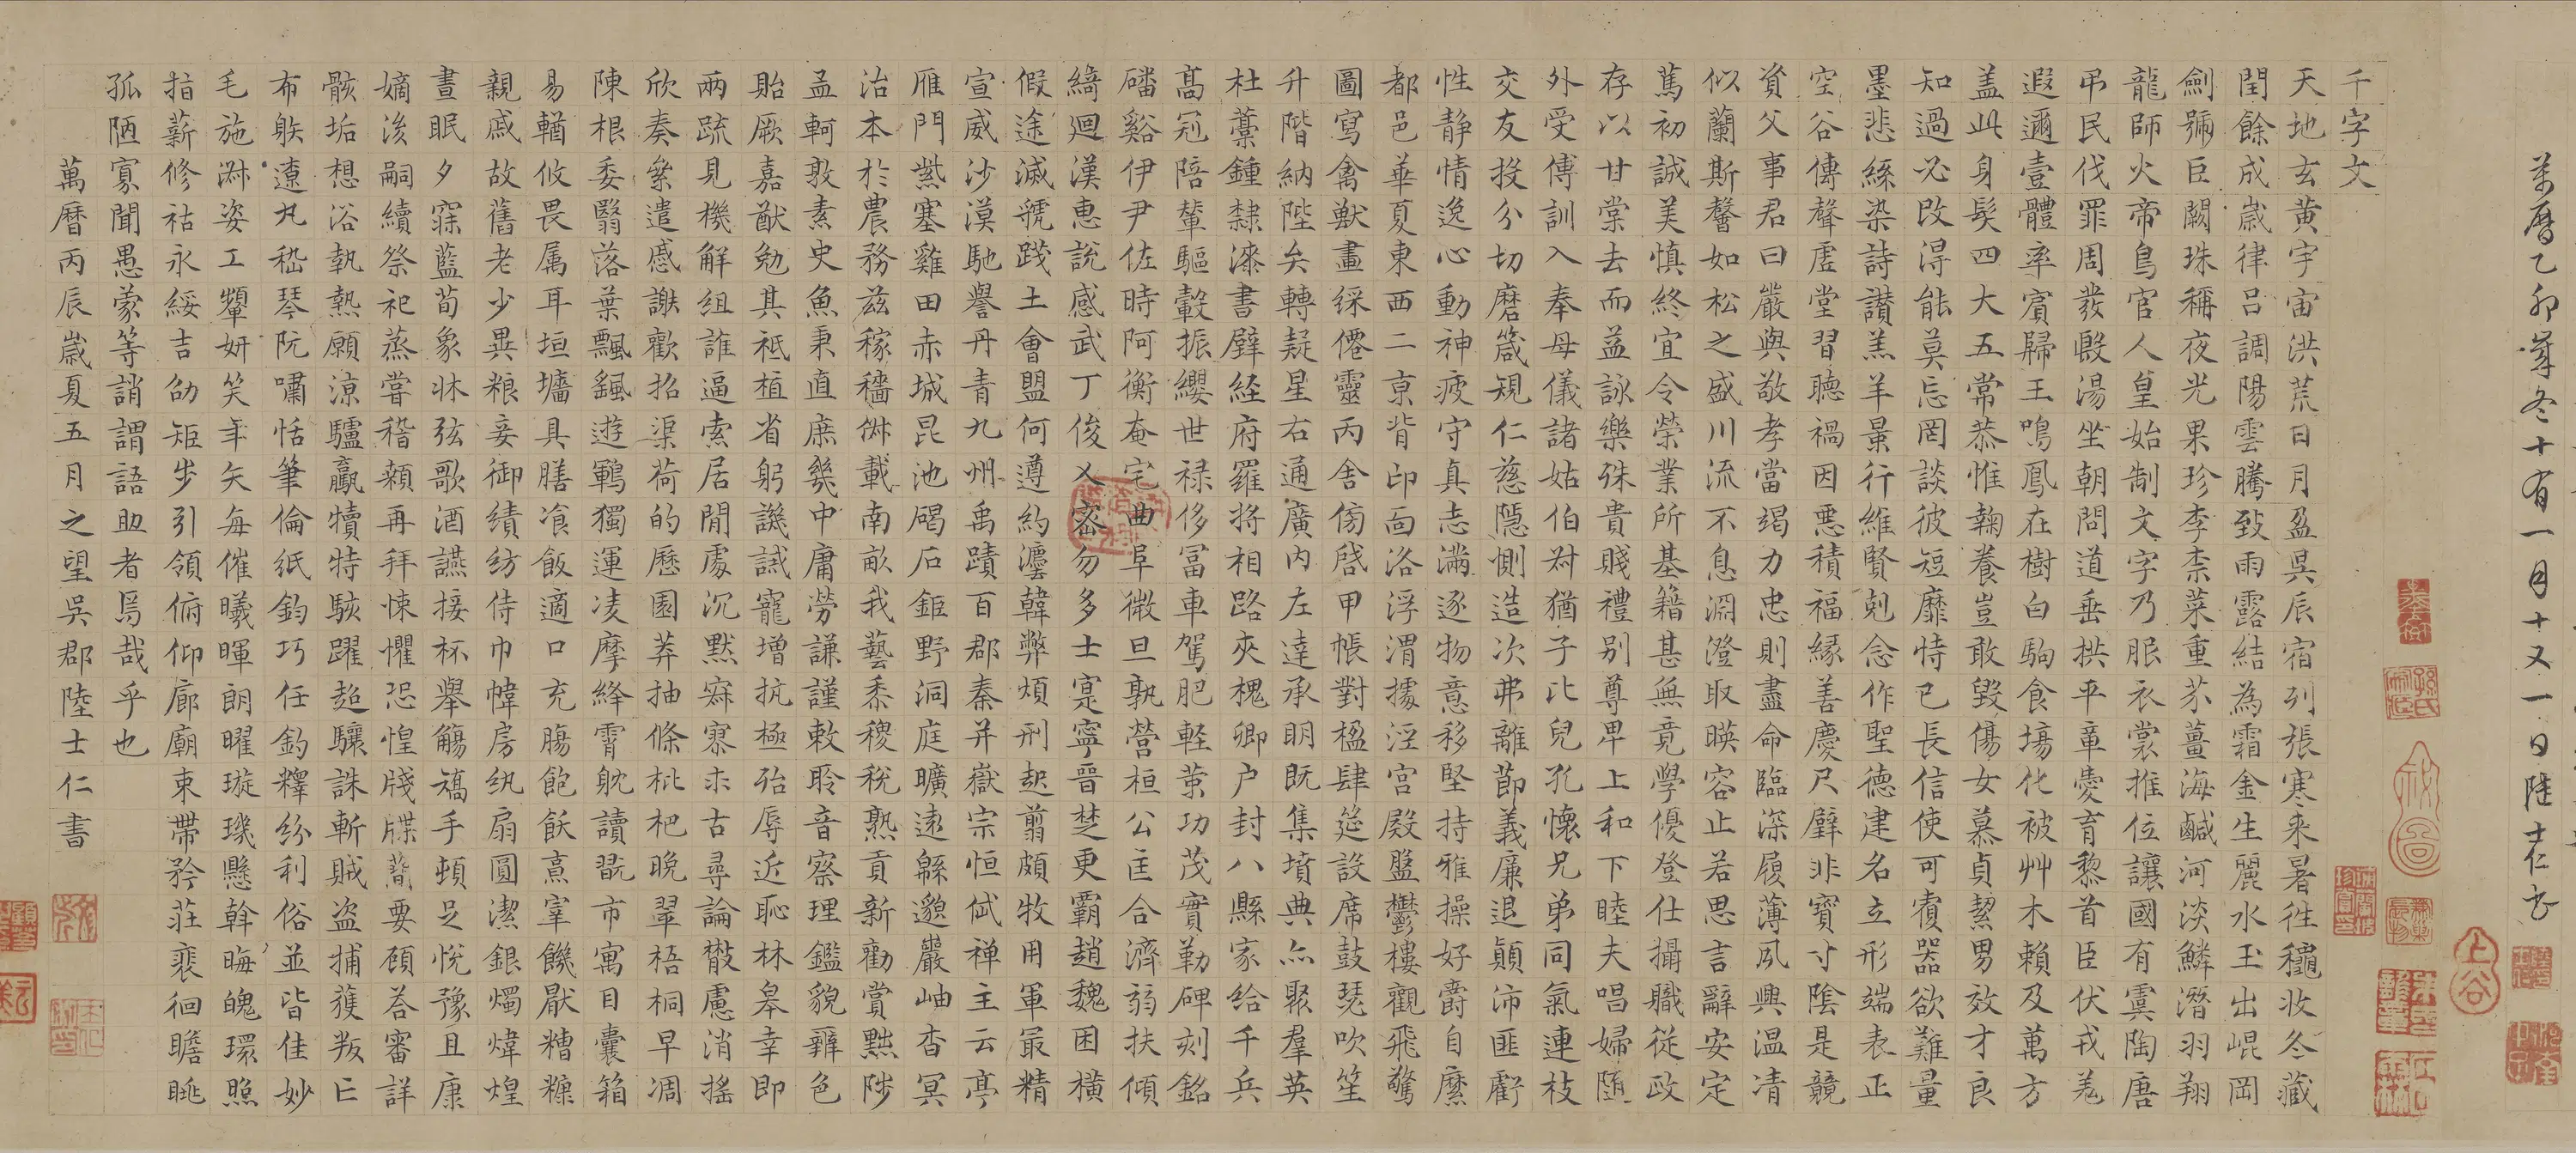 萬曆乙卯歲冬十有一月十又一日陸士仁書
千字文
天地玄黃宇宙洪荒日月盈昃辰宿列張寒来暑往穐收冬藏
閏餘成嵗律呂調陽雲騰致雨露結為霜金生麗水玉出崐岡
劍號巨闕珠稱夜光果珍李柰菜重芥薑海鹹河淡鱗潛羽翔
龍師火帝鳥官人皇始制文字乃服衣裳推位讓國有虞陶唐
弔民伐罪周發殷湯坐朝問道垂拱平章愛育黎首臣伏戎羌
遐邇壹體率賓歸王鳴鳳在樹白駒食場化被艸木賴及萬方
盖此身髮四大五常恭惟鞠養豈敢毀傷女慕貞絜男效才良
知過必改得能莫忘罔談彼短靡恃已長信使可覆器欲難量
墨悲絲染詩讚羔羊景行維賢剋念作聖德建名立形端表正
空谷傳聲虛堂習聽禍因惡積福緣善慶尺璧非寶寸陰是競
資父事君曰嚴與敬孝當竭力忠則盡命臨深履薄夙興溫凊
似蘭斯馨如松之盛川流不息淵澄取暎容止若思言辭安定
篤初誠美慎終宜令榮業所基籍甚無竟學優登仕攝職從政
存以甘棠去而益詠樂殊貴賤禮別尊卑上和下睦夫唱婦隨
外受傅訓入奉母儀諸姑伯叔猶子比兒孔懷兄弟同氣連枝
交友投分切磨箴規仁慈隱惻造次弗離節義廉退顛沛匪虧
性靜情逸心動神疲守真志滿逐物意移堅持雅操好爵自縻
都邑華夏東西二京背邙面洛浮渭據涇宮殿盤鬱樓觀飛驚
圖寫禽獸畫綵僊靈丙舍傍啓甲帳對楹肆筵設席鼓瑟吹笙
升階納陛弁轉疑星右通廣內左達承明既集墳典亦聚羣英
杜藁鍾隸漆書壁経府羅將相路夾槐卿户封八縣家給千兵
高冠陪輦驅轂振纓世禄侈富車駕肥軽策功茂實勒碑刻銘
磻谿伊尹佐時阿衡奄宅曲阜微旦孰營桓公匡合濟弱扶傾
綺迴漢惠說感武丁俊乂密勿多士寔寧晉楚更霸趙魏困橫
假途滅虢踐土會盟何遵約灋韓弊煩刑起翦頗牧用軍最精
宣威沙漠馳譽丹青九州禹蹟百郡秦并嶽宗恒岱禅主云亭
雁門紫塞雞田赤城昆池碣石鉅野洞庭曠遠緜邈巖岫杳冥
治本於農務茲稼穡俶載南畝我藝黍稷稅熟貢新勸賞黜陟
孟軻敦素史魚秉直庶幾中庸勞謙謹敕聆音察理鑑貌辨色
貽厥嘉猷勉其祗植省躬譏誡寵增抗極殆辱近恥林皋幸即
兩疏見機解組誰逼索居閒處沉默寂寥求古尋論散慮消搖
欣奏累遣慼謝歡招渠荷的歷園莽抽條枇杷晚翠梧桐早凋
陳根委翳落葉飄颻遊鵾獨運凌摩絳霄耽讀翫市寓目囊箱
易輶攸畏属耳垣墻具膳飡飯適口充腸飽飫烹宰饑厭糟糠
親戚故舊老少異粮妾御績紡侍巾幃房紈扇圓潔銀燭煒煌
晝眠夕寐藍筍象牀弦歌酒讌接杯舉觴矯手頓足悅豫且康
嫡後嗣續祭祀蒸嘗稽顙再拜悚懼恐惶牋牒簡要顧答審詳
骸垢想浴執熱願涼驢驘犢特駭躍超驤誅斬賊盜捕獲叛亡
布躲遼丸嵇琴阮嘯恬筆倫紙鈞巧任釣釋紛利俗並皆佳妙
毛施淑姿工顰妍笑年矢每催曦暉朗曜璇璣懸斡晦魄環照
指薪修祜永綏吉劭矩步引領俯仰廊廟束帶矜莊裵徊瞻眺
孤陋寡聞愚蒙等誚謂語助者焉哉乎也
萬曆丙辰嵗夏五月之望吳郡陸士仁書